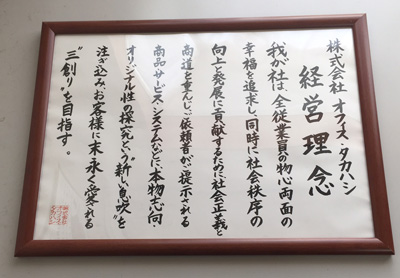 株式会社 オフィス・タカハシ
経営理念
我が社は、全従業員の物心両面の
幸福を追求し、同時に社会秩序の
向上と発展に貢献するために社会正義と
商道を重んじご依頼者が提示される
商品・サービス・システムなどに、本物志向・
オリジナル性の探究という“新しい息吹”を
注ぎ込み、お客様に末永く愛される
“三創り”を目指す。